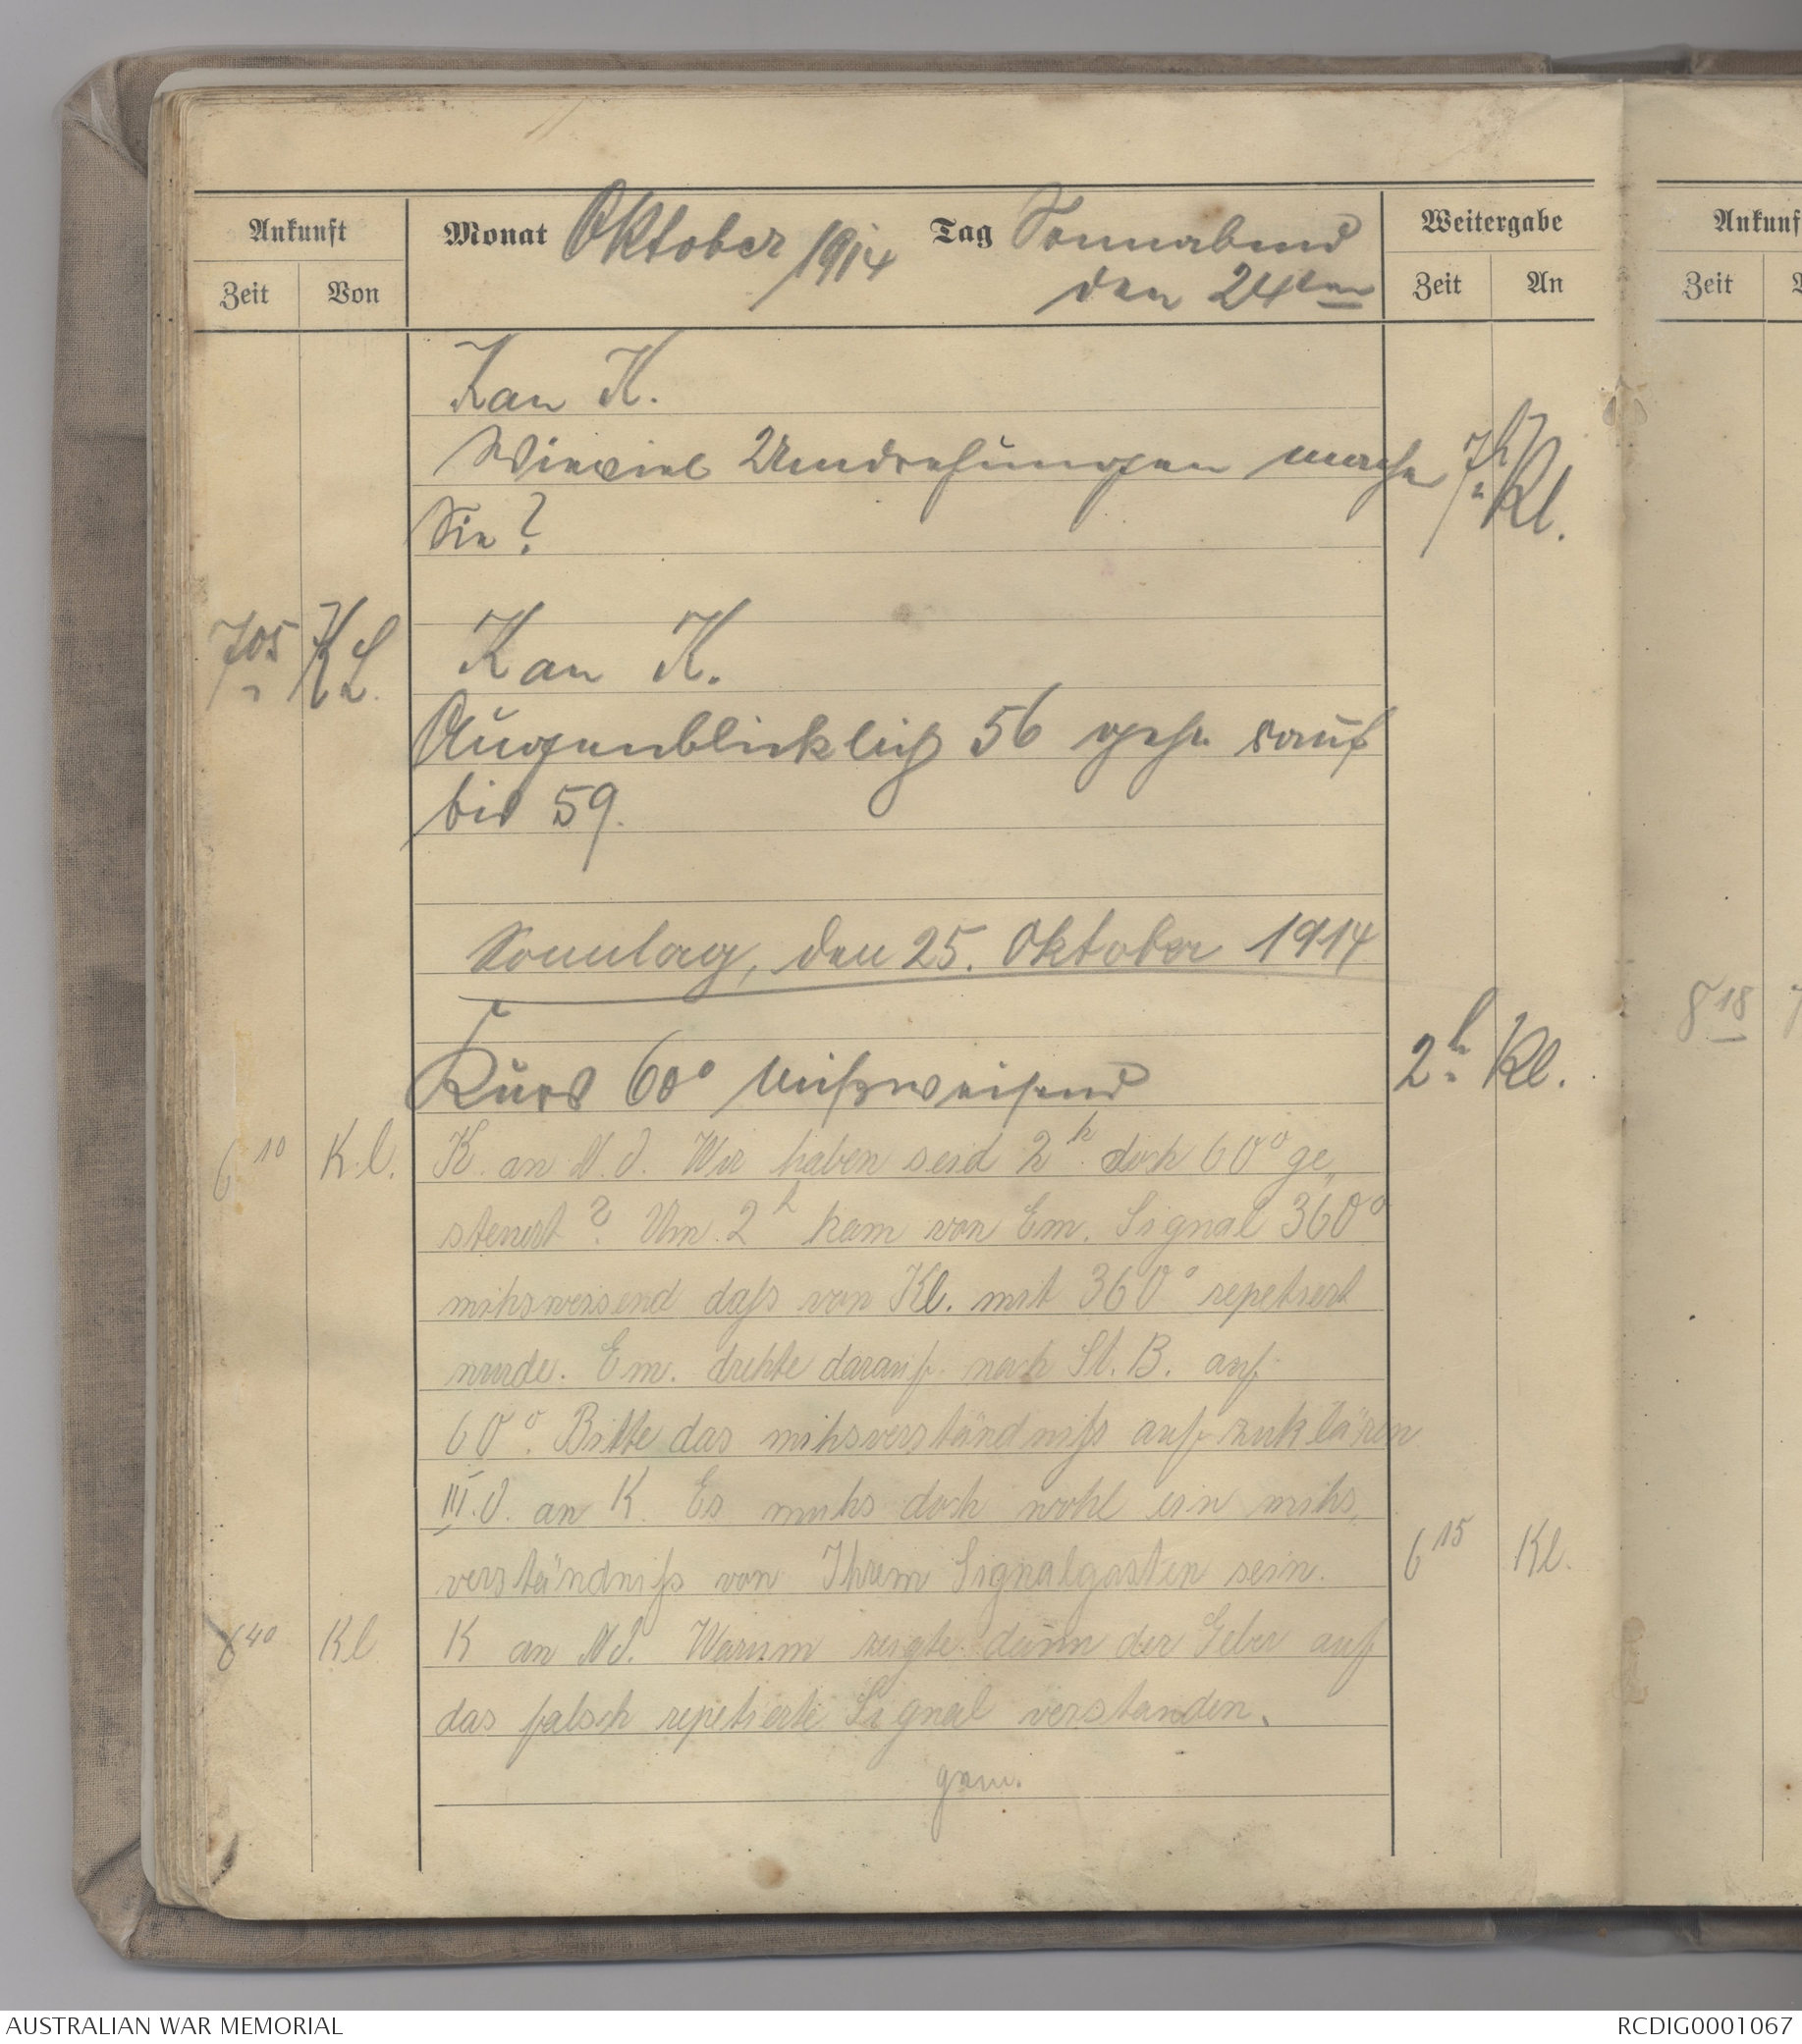 Ankunft
Monat Oktober 1914 Tag Sonnabend
den 24ten
Weitergabe
Zeit Von
Zeit An
K an K.
Wieviel Umdrehungen machen 7h Kl.
Sie?
705 Kl. K an K.
Augenblicklich 56 gehe rauf
bis 59.
Sonntag, den 25. Oktober 1914
Kurs 60° mißweisend 2h Kl.
6 10 K.l. K. an N.O. Wir haben seid 2h doch 60° ge„
steuert? Um 2h kam von Em. Signal 360°
mihsweisend daß von Kl. mit 360° repetiert
wurde. Em. drehte darauf nach St. B. auf
60°. Bitte das mihsverständniß aufzuklären
N.O. an K. Es muhs doch wohl ein mihs„
verständniß von Ihrem Signalgasten sein. 6 15 Kl.
6 40 Kl K an N.O. Warum zeigte denn der Geber auf
das falsch repetierte Signal verstanden.
Ankunf
Zeit
8 18
AUSTRALIAN WAR MEMORIAL
RCDIG0001067